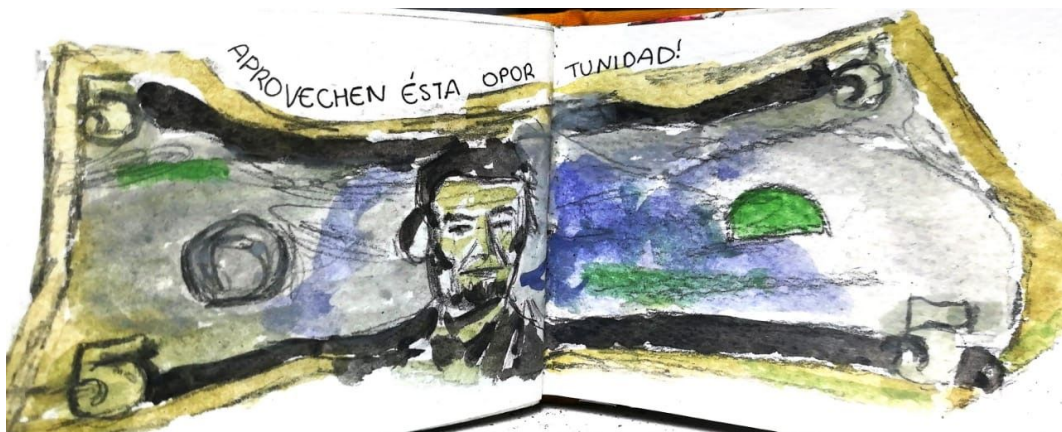 APROVECHEN ÉSTA OPORTUNIDAD!
5 5
5 5